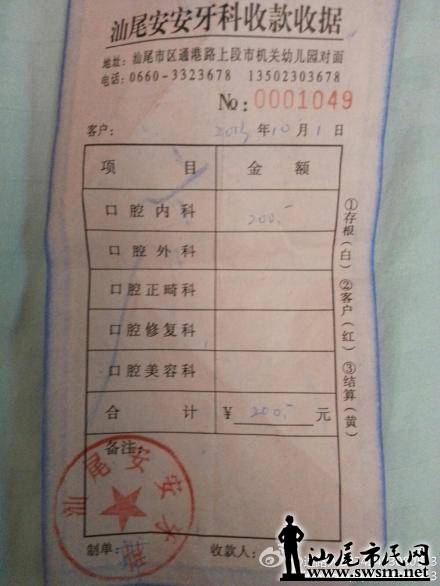 汕尾安安牙科收款收据
地址：汕尾市区通港路上段市机关幼儿园对面
电话：0660-3323678 13502303678
No: 0001049
客户： 2013年10月1日
项目 金额
口腔内科 200.-
口腔外科
口腔正畸科
口腔修复科
口腔美容科
合计 ¥200.-元
备注：
①存根(白) ②客户(红) ③结算(黄)
汕尾安安牙
制单： 收款人：
汕尾市民网
www.swsm.net